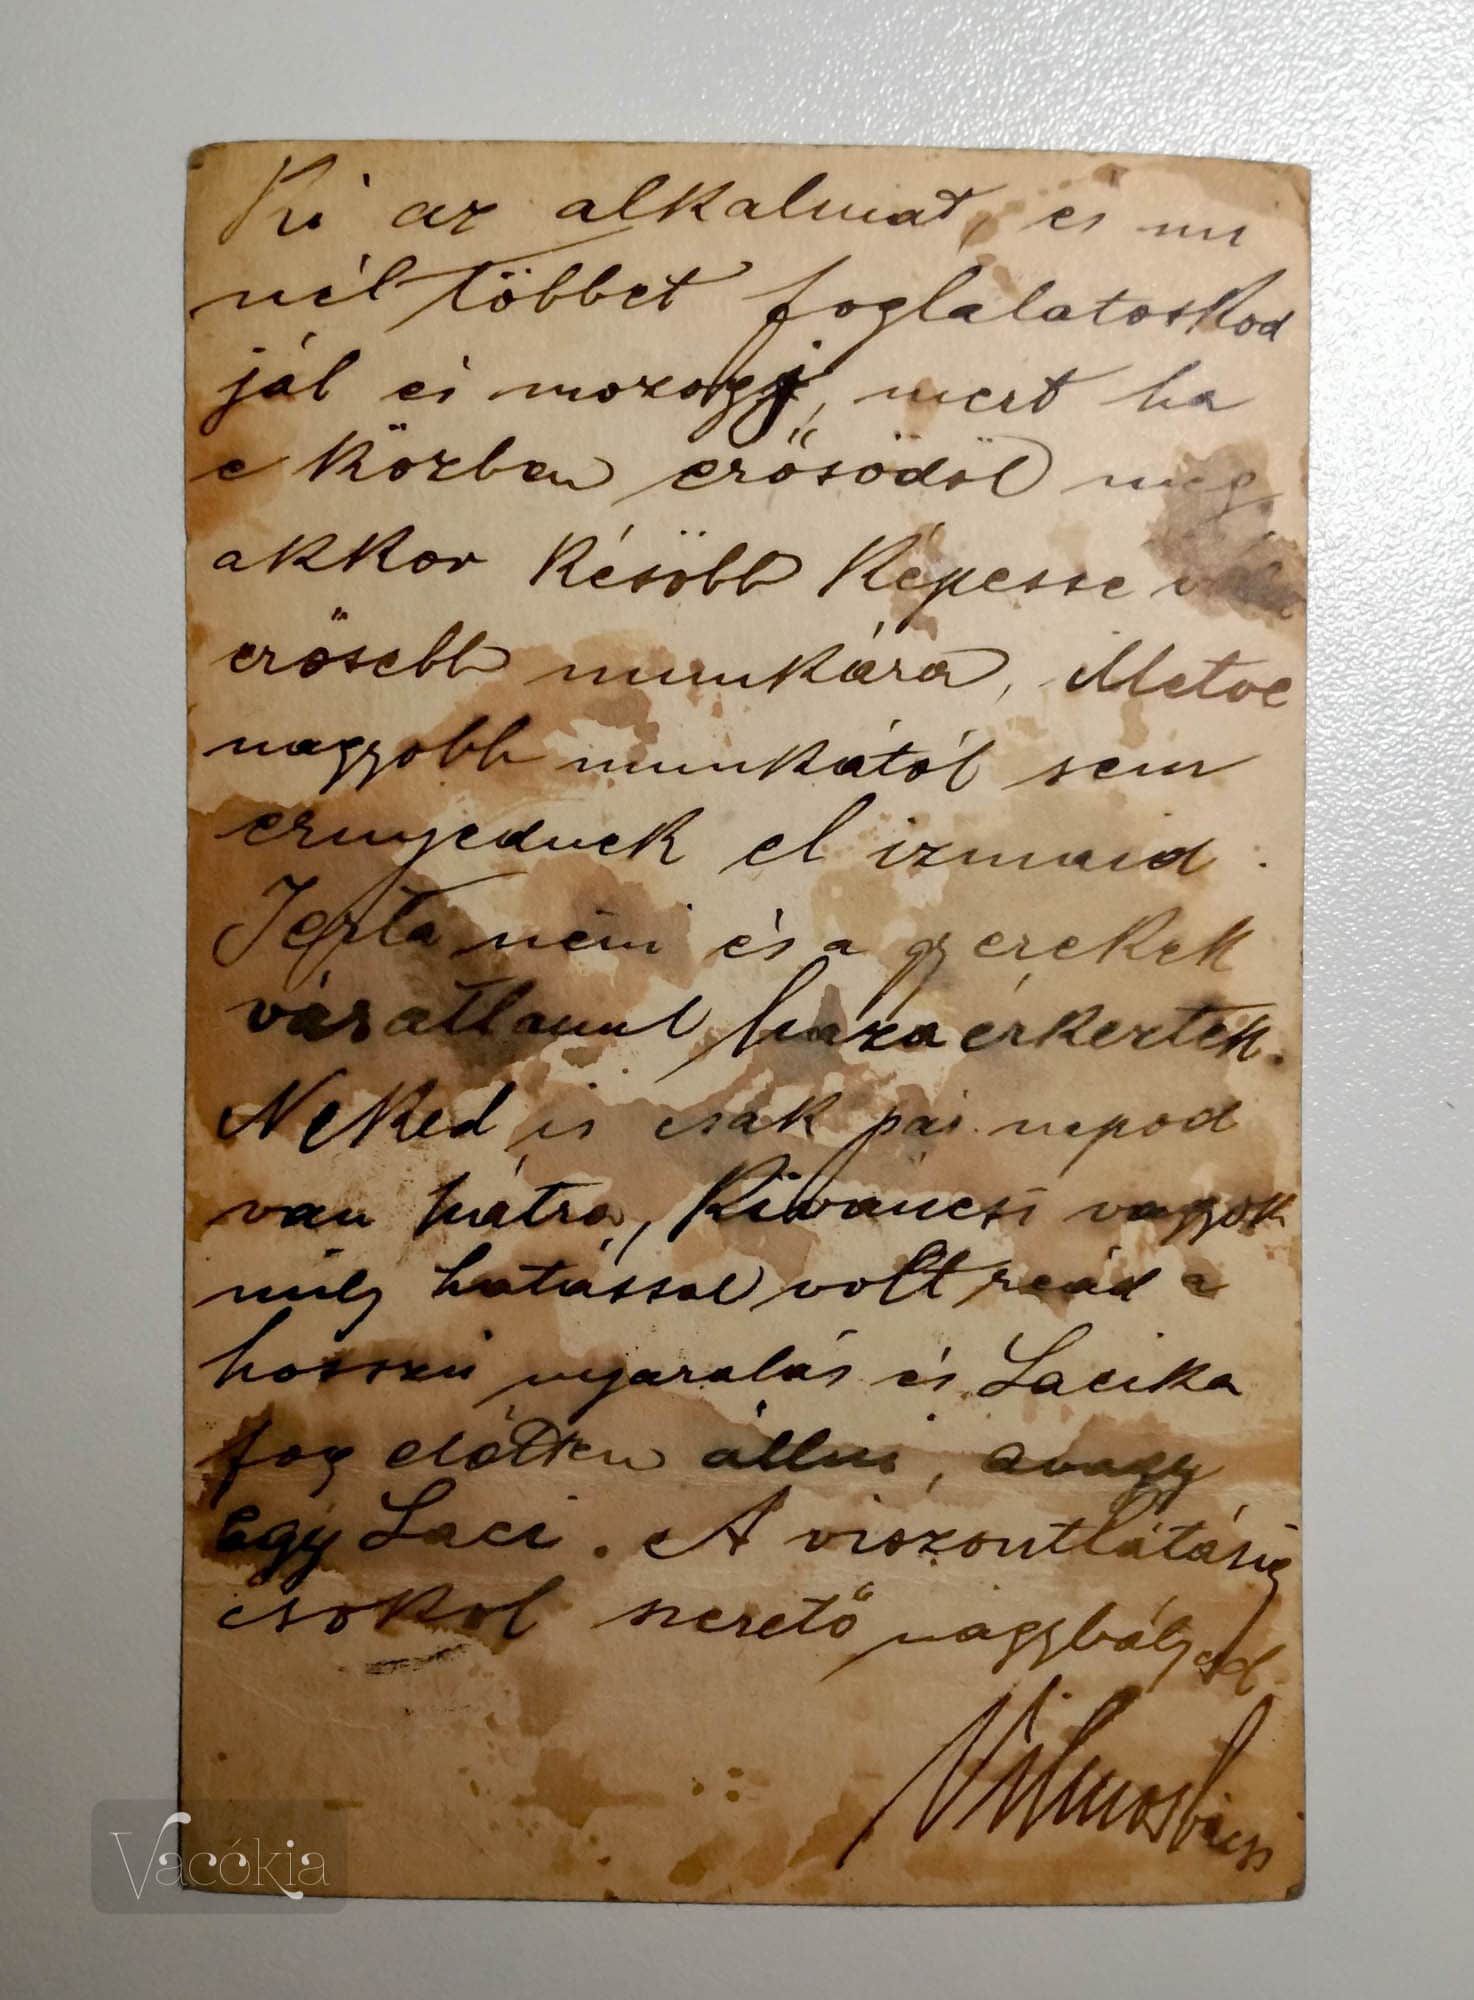 Ki az alkalmat, és mi
nél többet foglalatoskod
jál és mozogj, mert ha
e közben erősödöl meg
akkor később képesse
erősebb munkára, illetve
nagyobb munkától sem
ernyednek el izmaid.
néni és a gyerekek
váratlanul haza érkeztek.
Neked is csak pár napod
van hátra, Kiváncsi vagyok
mily hatással volt reád a
hosszú nyaralás és Lacika
fog előttem állni, avagy
egy Laci. A viszontlátásig
csokol szerető nagybátyad
Vilmos bácsi
Vacókia